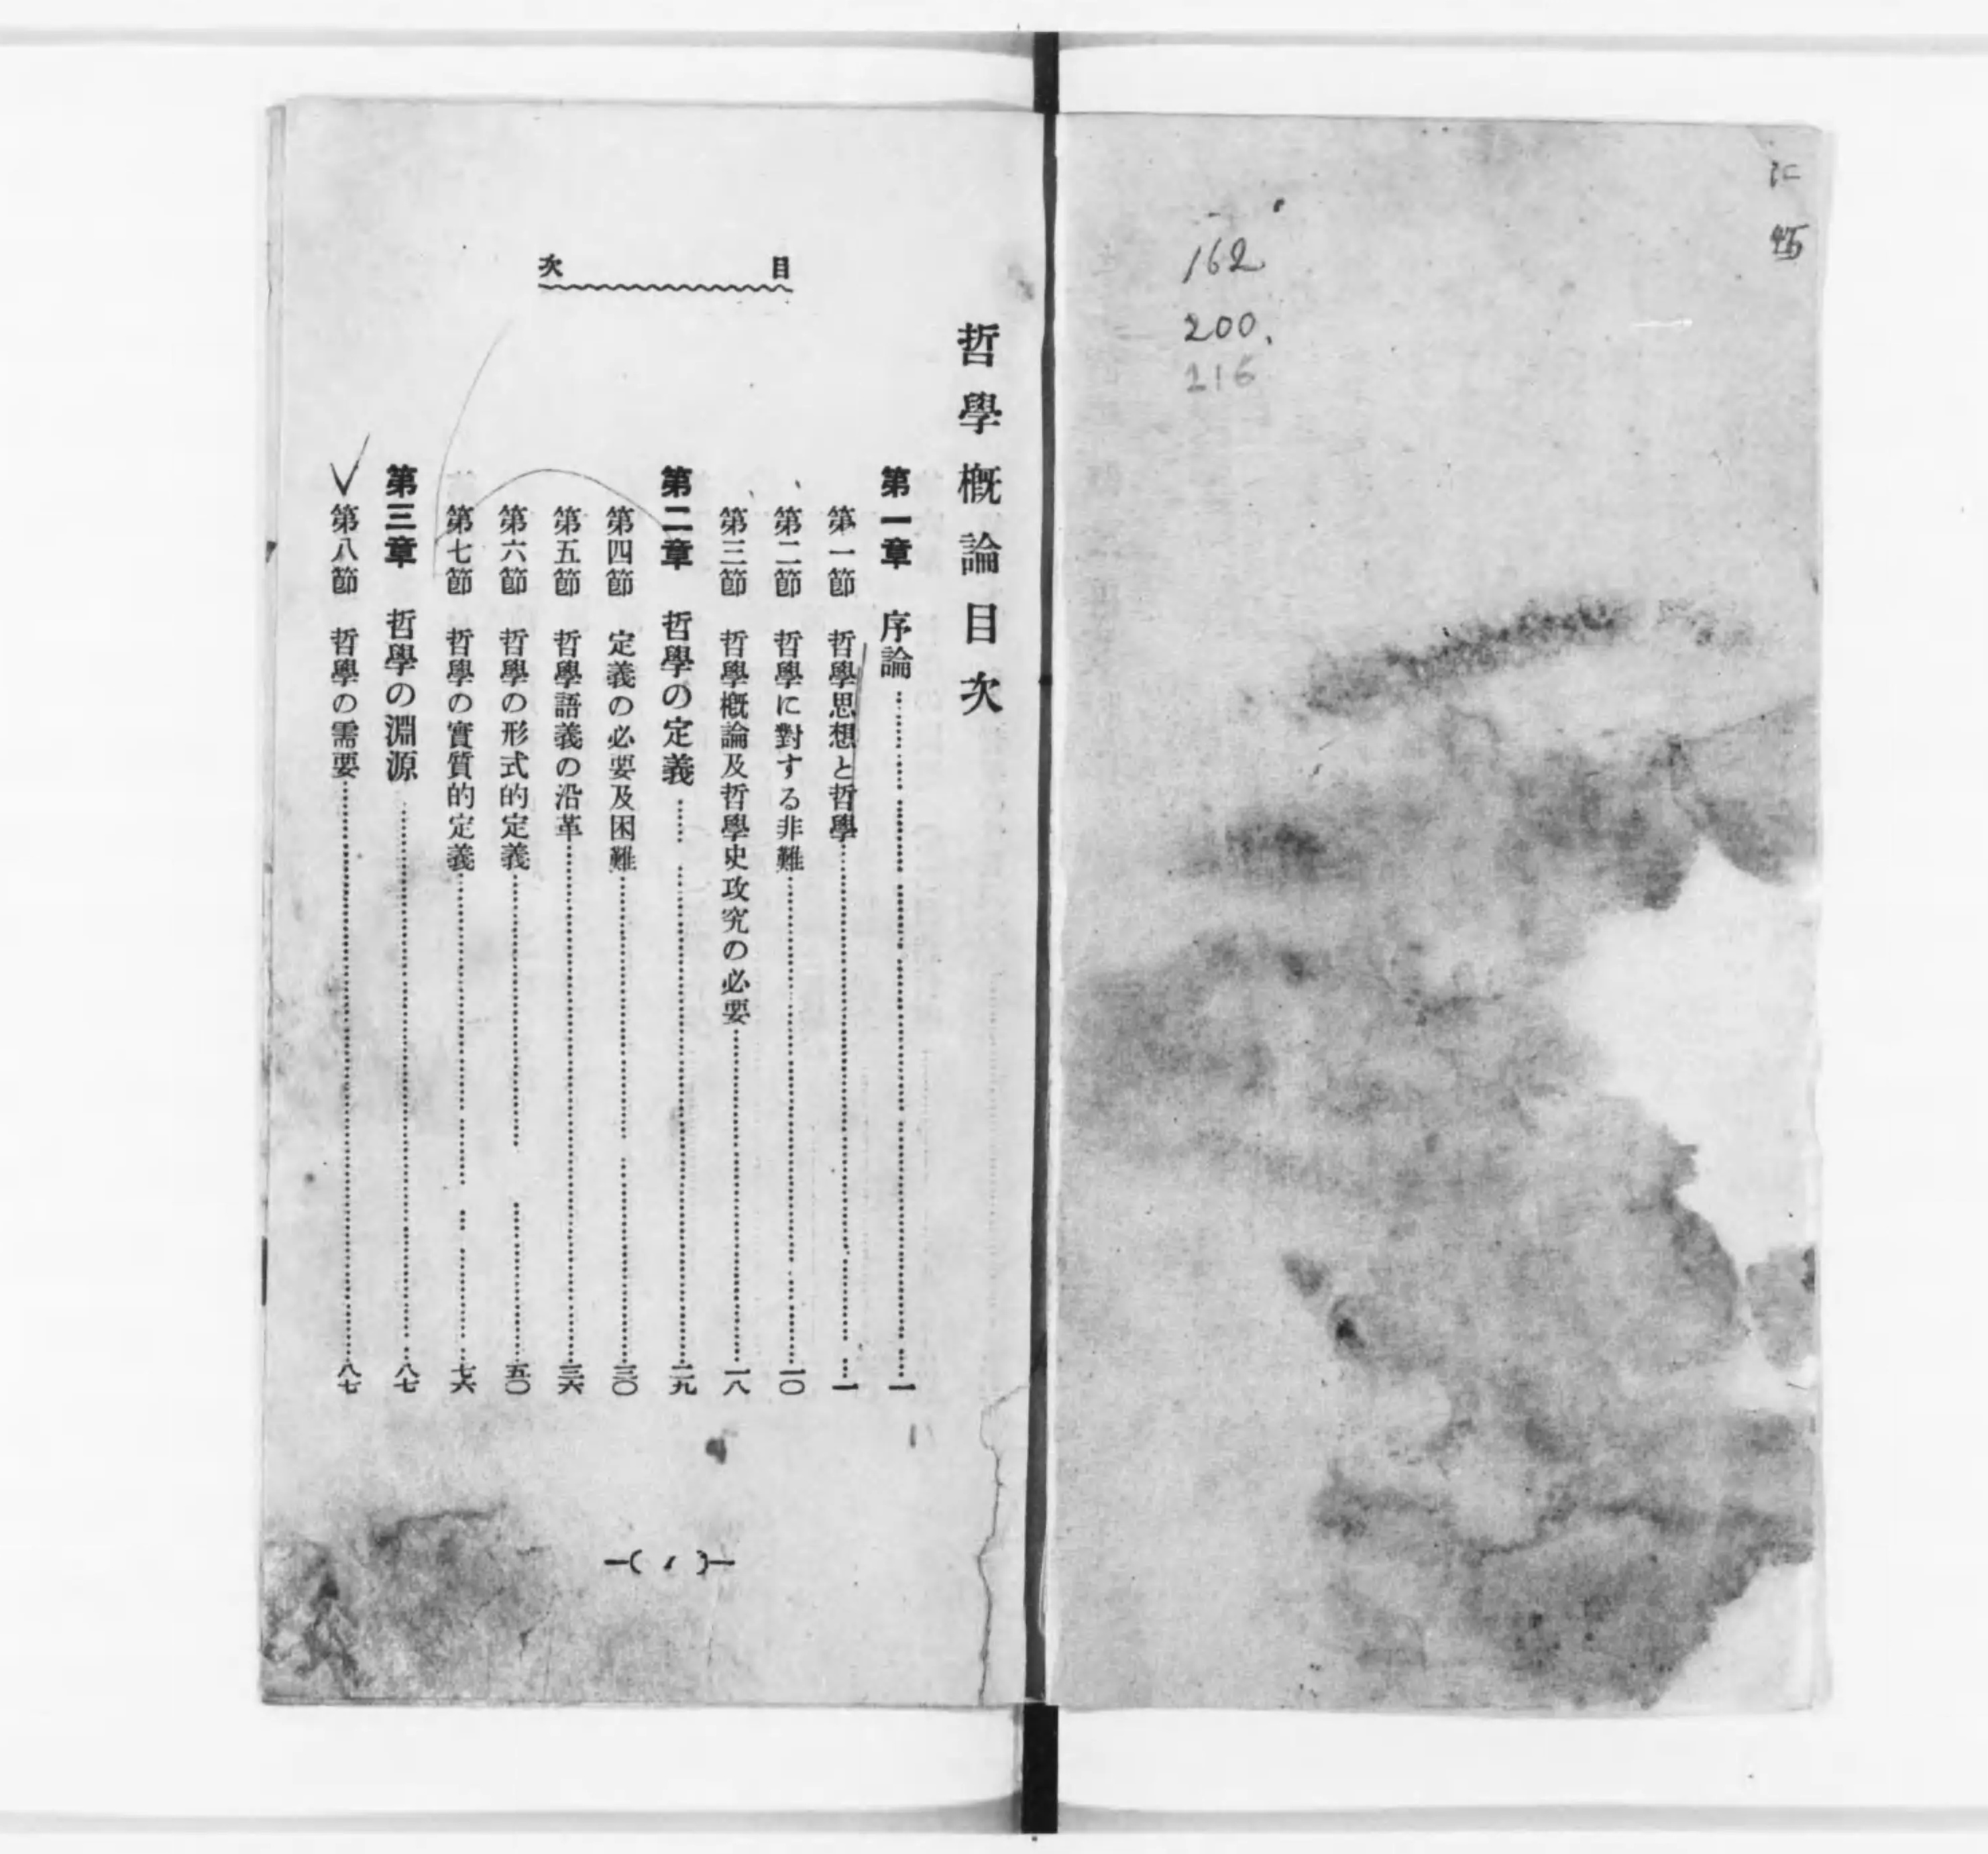 162
200.
216
目次
哲學槪論目次
第一章 序論……一
第一節 哲學思想と哲學……一
第二節 哲學に對する非難……一〇
第三節 哲學槪論及哲學史攻究の必要……一八
第二章 哲學の定義……二九
第四節 定義の必要及困難……三〇
第五節 哲學語義の沿革……三六
第六節 哲學の形式的定義……五〇
第七節 哲學の實質的定義……七六
第三章 哲學の淵源……八七
第八節 哲學の需要……八七